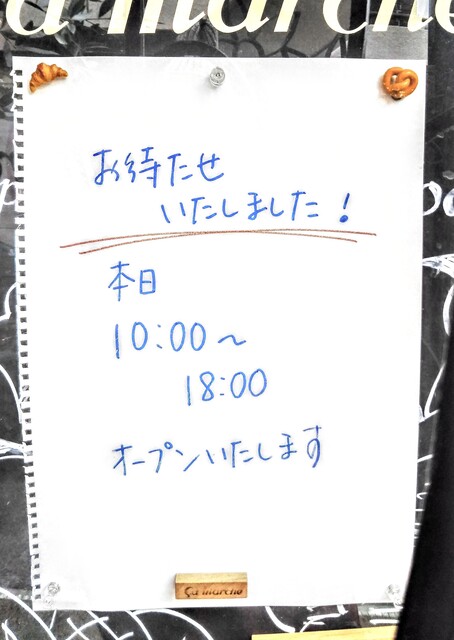 a marche
お待たせ
いたしました！
本日
10:00～
18:00
オープンいたします
Ça marche